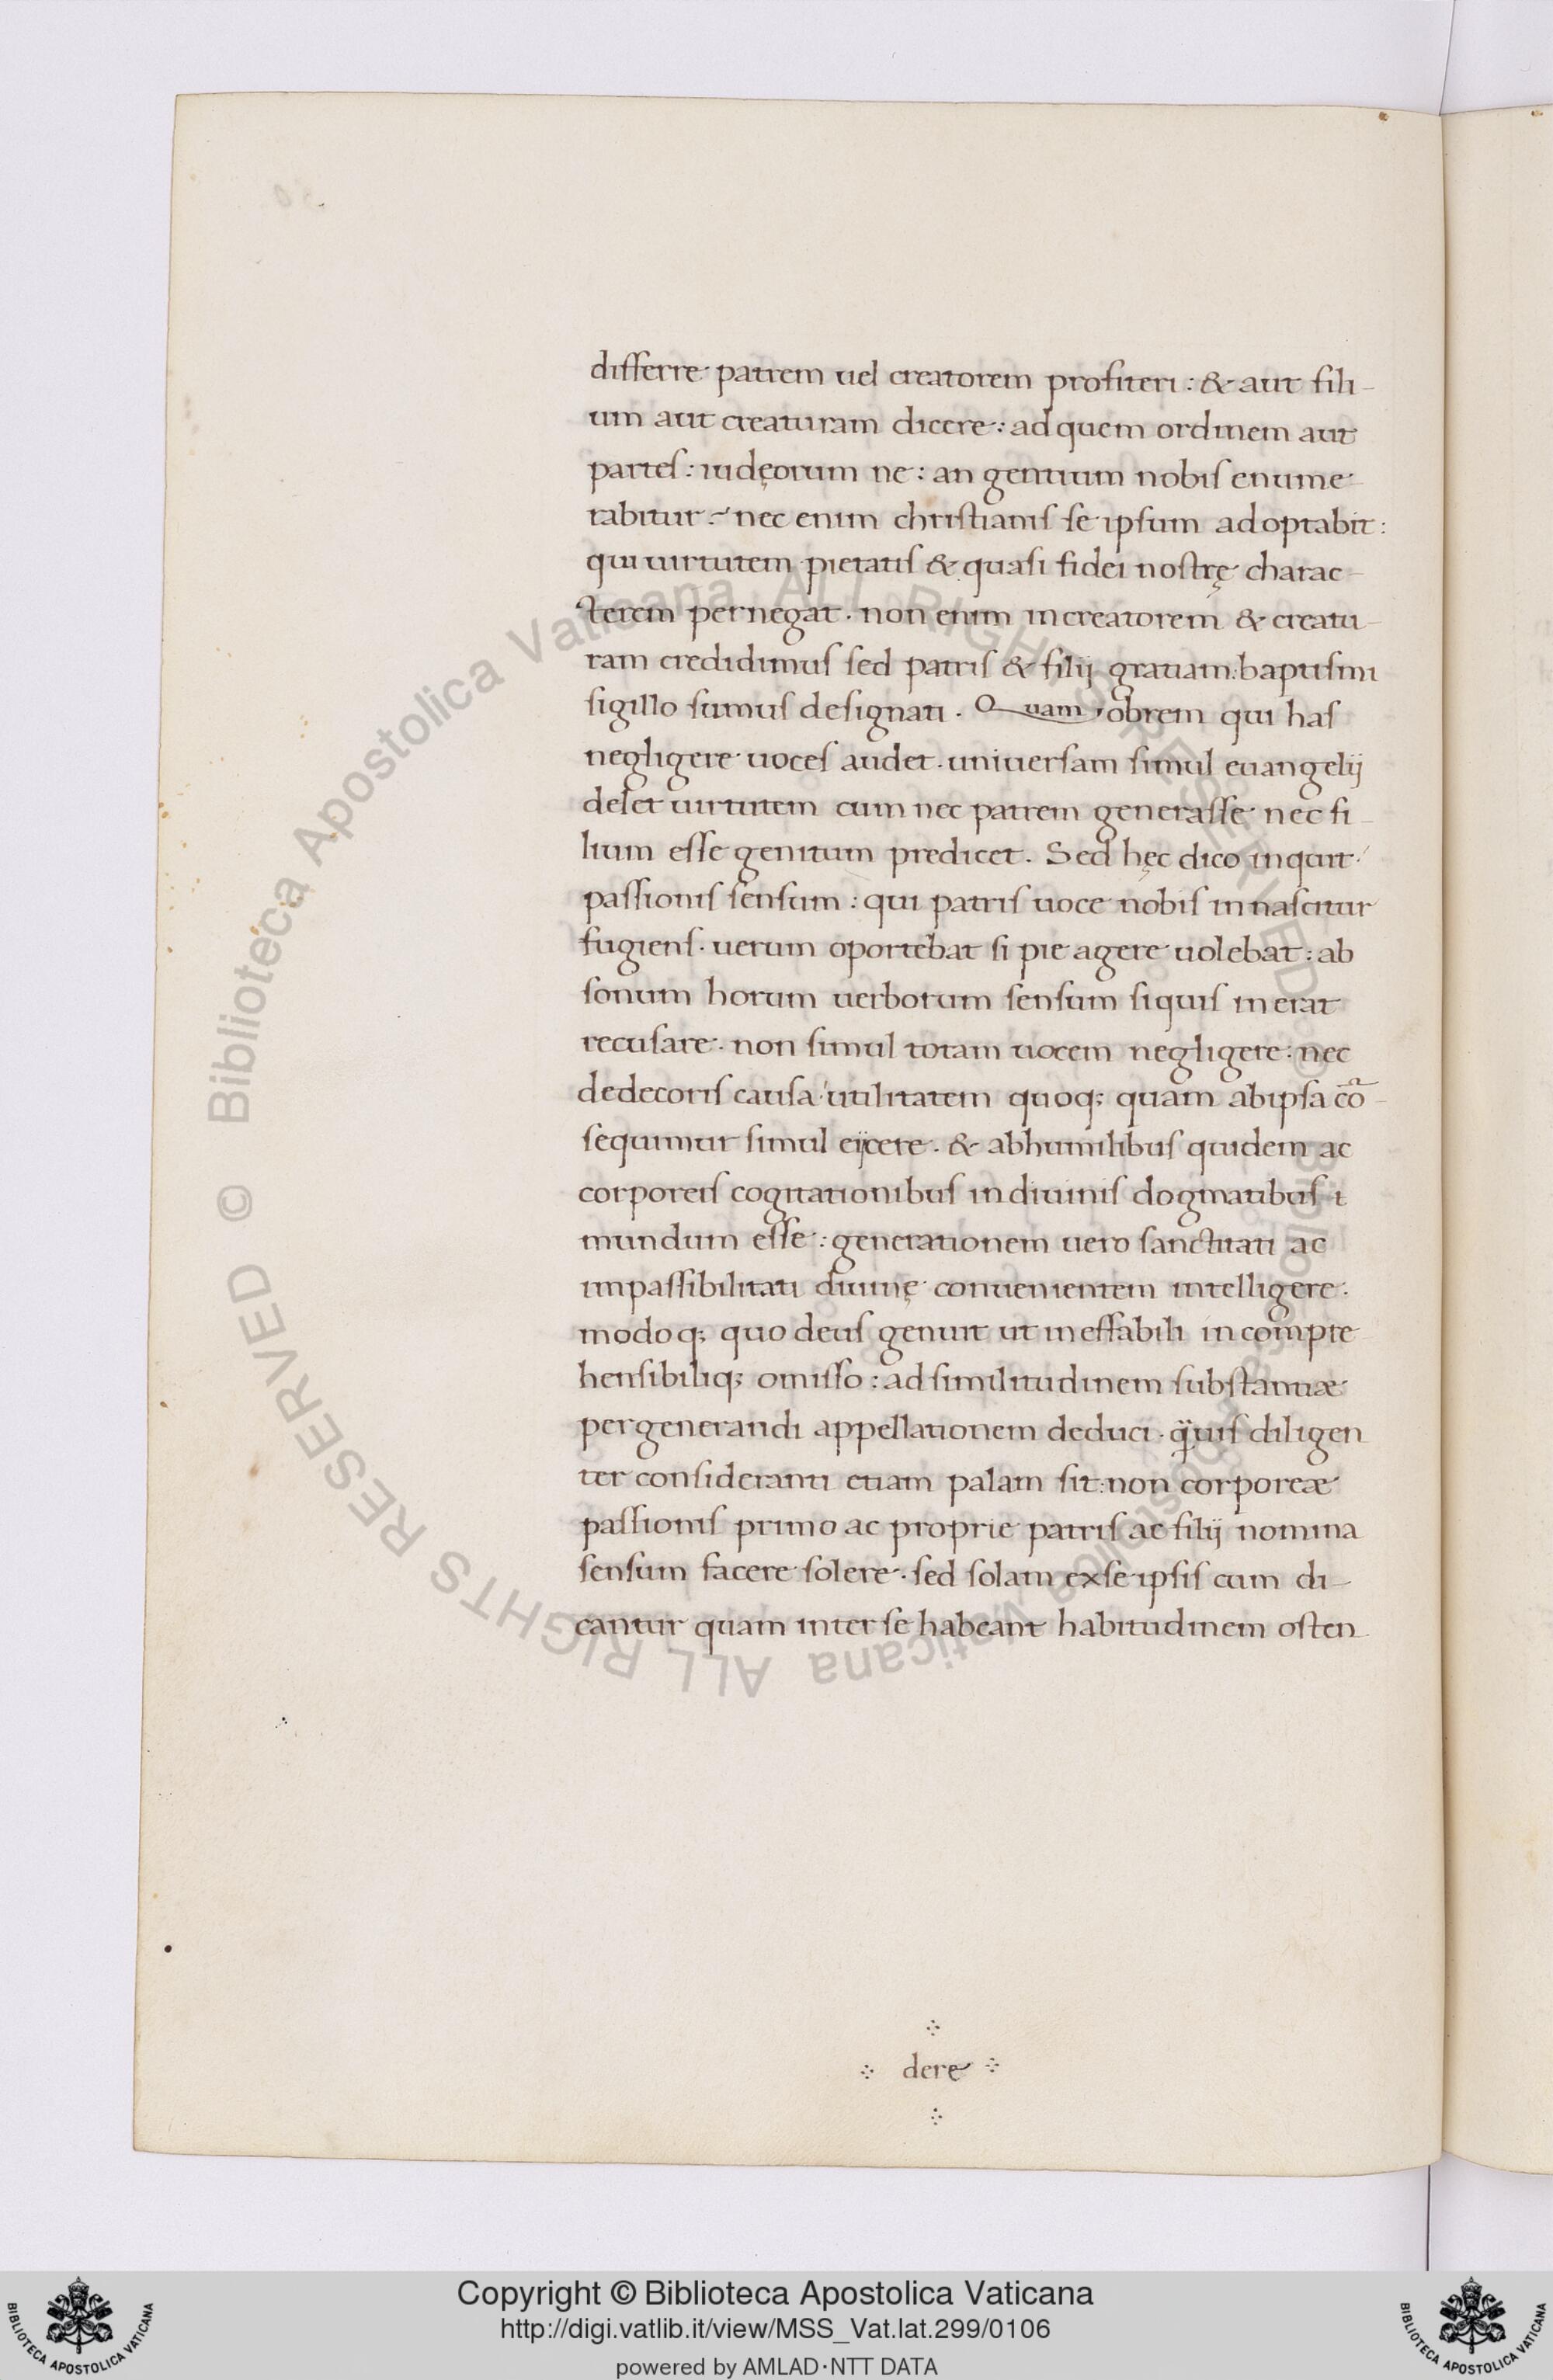 differre patrem uel creatorem profiteri: & aut fili-
um aut creaturam dicere: ad quem ordinem aut
partes: iudęorum ne: an gentium nobis enume
rabitur? nec enim christianis se ipsum adoptabit:
qui uirtutem pietatis & quasi fidei nostrę charac-
terem pernegat. non enim in creatorem & creatu-
ram credidimus sed patris & filij gratiam: baptismi
sigillo sumus designati. Quam obrem qui has
negligere uoces audet. uniuersam simul euangelij
delet uirtutem cum nec patrem generasse nec fi-
lium esse genitum predicet. Sed hęc dico inquit
passionis sensum: qui patris uoce nobis innascitur
fugiens. uerum oportebat si pie agere uolebat: ab
sonum horum uerborum sensum siquis inerat
recusare. non simul totam uocem negligere: nec
dedecoris causa utilitatem quoq; quam abipsa cō-
sequimur simul eijcere. & abhumilibus quidem ac
corporeis cogitationibus in diuinis dogmatibus ī
mundum esse: generationem uero sanctitati ac
impassibilitati diuinę conuenientem intelligere.
modoq; quo deus genuit ut ineffabili incompre
hensibiliq; omisso: ad similitudinem substantiæ
pergenerandi appellationem deduci. q̈uis diligen
ter consideranti etiam palam sit: non corporeæ
passionis primo ac proprie patris ac filij nomina
sensum facere solere. sed solam exse ipsis cum di-
cantur quam inter se habeant habitudinem osten
dere
© Biblioteca Apostolica Vaticana ALL RIGHTS RESERVED © Biblioteca Apostolica Vaticana ALL RIGHTS RESERVED
Copyright © Biblioteca Apostolica Vaticana
http://digi.vatlib.it/view/MSS_Vat.lat.299/0106
powered by AMLAD·NTT DATA
BIBLIOTECA APOSTOLICA VATICANA
BIBLIOTECA APOSTOLICA VATICANA